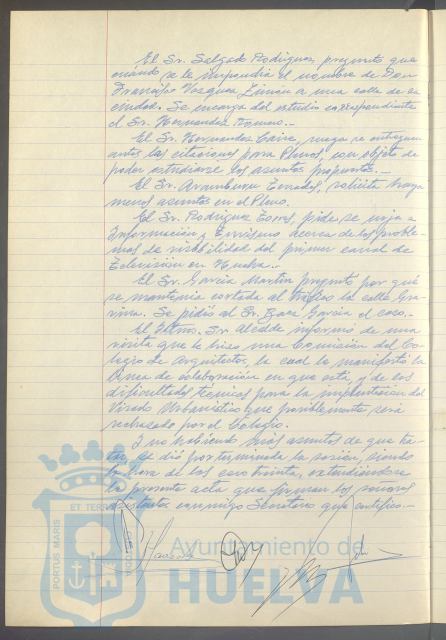 El Sr. Salgado Rodriguez, pregunta que
cuándo se le impondrá el nombre de Don
Francisco Vazquez Limón a una calle de la
ciudad. Se encarga del estudio correspondiente
el Sr. Hernandez
El Sr. Hernandez ruega se entreguen
antes las citaciones para Plenos, con objeto de
poder estudiarse los asuntos propuestos.-
El Sr. Aramburu solicita haya
menos asuntos en el Pleno.
El Sr. Rodriguez Torres, pide se exija a
Información y Turismo acerca de los proble-
mas de visibilidad del primer canal de
Televisión en Huelva.-
El Sr. García Martin pregunta por qué
se mantenia cortada al tráfico la calle Gra-
vina. Se pidió al Sr. Garcia el caso.-
El Iltmo. Sr. Alcalde informó de una
visita que le hizo una Comisión del Co-
legio de Arquitectos, la cual le manifestó la
línea de colaboración en que está y de las
dificultades técnicas para la implantación del
Visado Urbanístico que posiblemente será
rechazado por el Colegio.
Y no habiendo más asuntos de que tra-
tar, se dió por terminada la sesión, siendo
la hora de las extendiéndose
la presente acta que firman los señores
asistentes conmigo Secretario que certifico.-
PORTUS MARIS ET TERRAE CUSTODIA
Ayuntamiento de
HUELVA